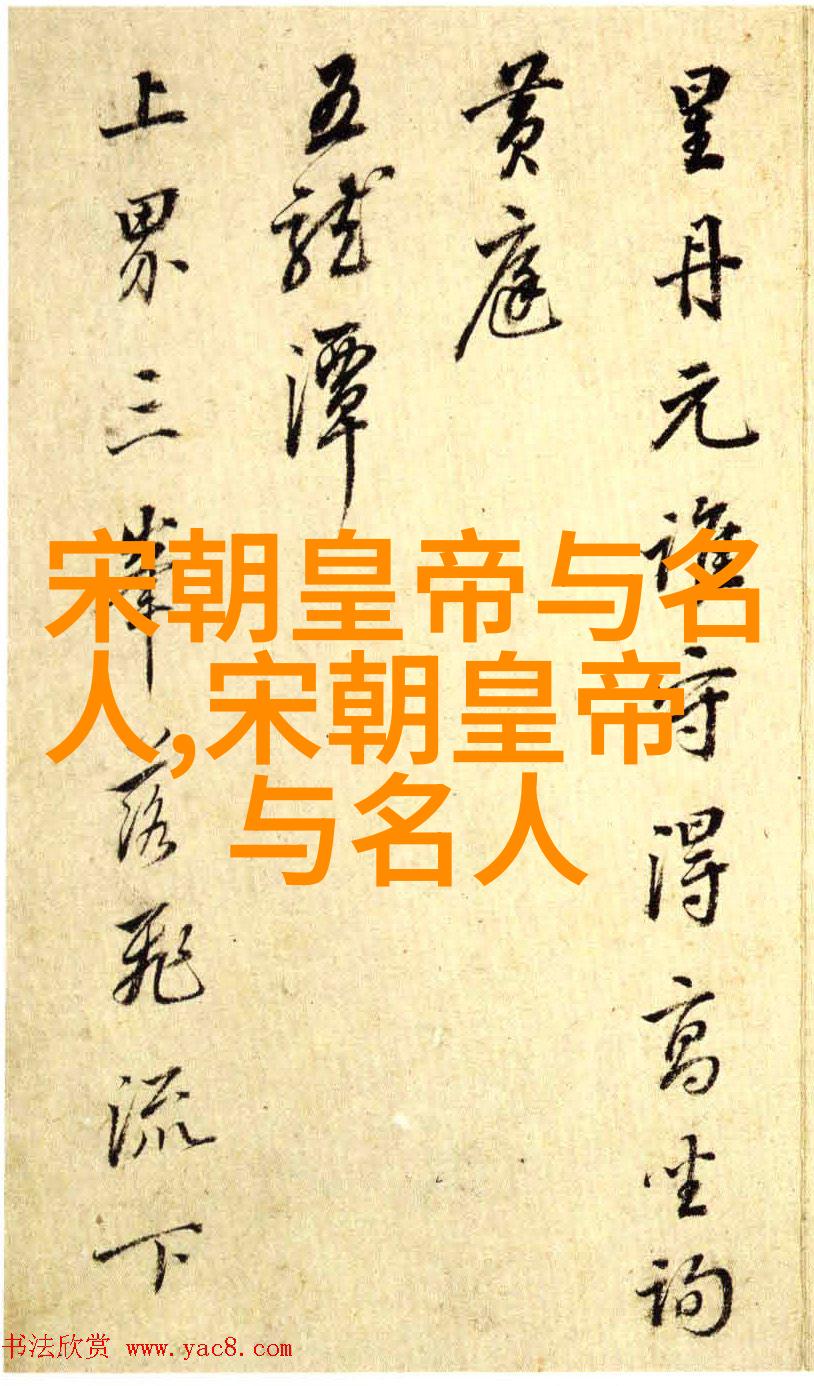 星丹元誰守得高坐詢
黄庭
五龍潭
上界三峯落飛流下
宋朝皇帝与名
人,宋朝皇帝
与名人
书法欣赏 www.yac8.com